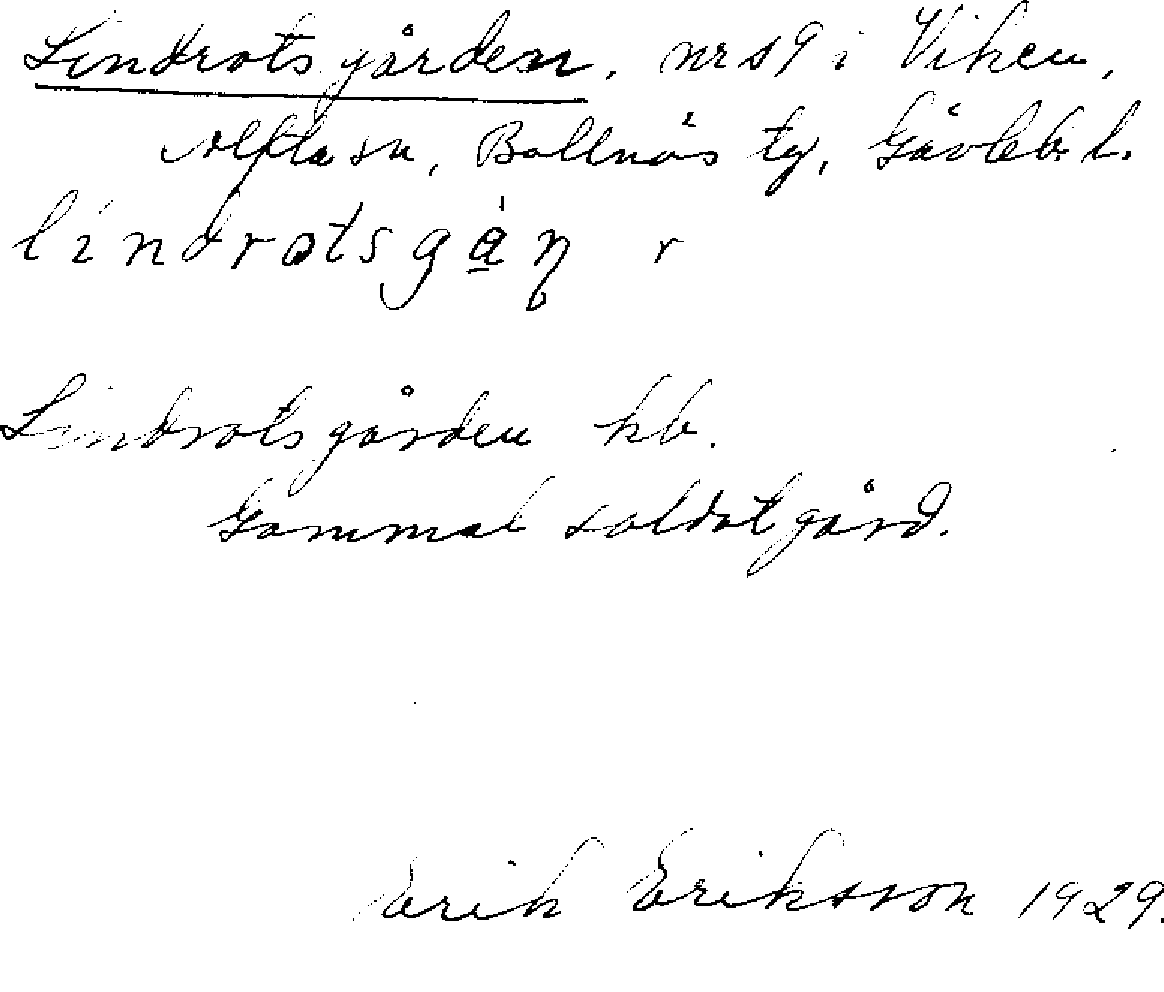 Lindrotsgården, nr 19 i Viken,
Alfta sn, Bollnäs tg, Gävleb. l.
líndrotsgạ̊ŋ r
Lindrotsgården kb.
Gammal soldatgård.
Erik Eriksson 1929.